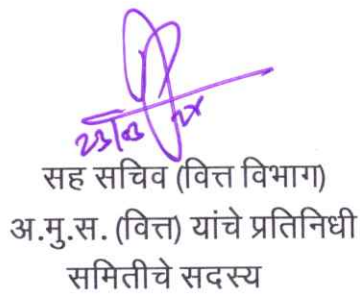 सह सचिव (वित्त विभाग)
अ.मु.स. (वित्त) यांचे प्रतिनिधी
समितीचे सदस्य